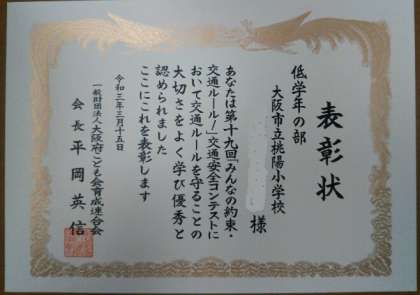 表彰状
低学年の部
大阪市立桃陽小学校
様
あなたは第十九回「みんなの約束・
交通ルール!」交通安全コンテストに
おいて交通ルールを守ることの
大切さをよく学び優秀と
認められました
ここにこれを表彰します
令和三年三月十五日
一般財団法人大阪府こども会育成連合会
会長 平岡英信